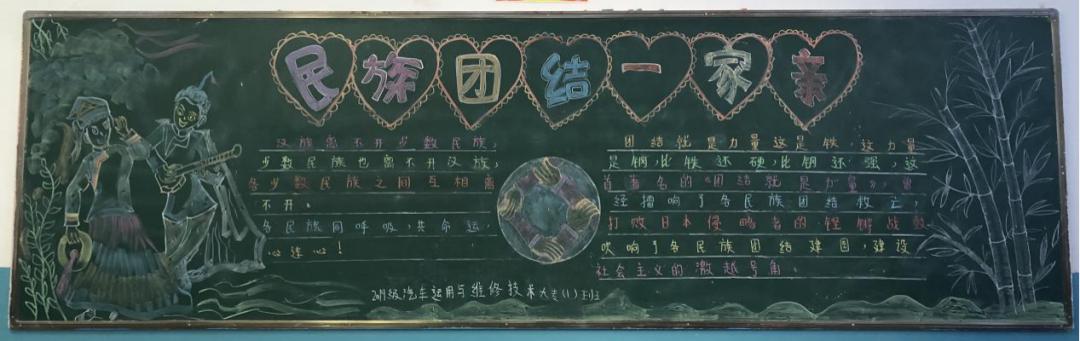 民族团结一家亲
汉族离不开少数民族，
少数民族也离不开汉族，
各少数民族之间互相离
不开。
各民族同呼吸，共命运，
心连心！
团结就是力量这是铁，这力量
是钢，比铁还硬，比钢还强，这
首著名的《团结就是力量》，曾
经擂响了各民族团结救亡，
打败日本侵略者的铿锵战鼓
吹响了各民族团结建国，建设
社会主义的激越号角。
级汽车运用与维修技术大专（1）班